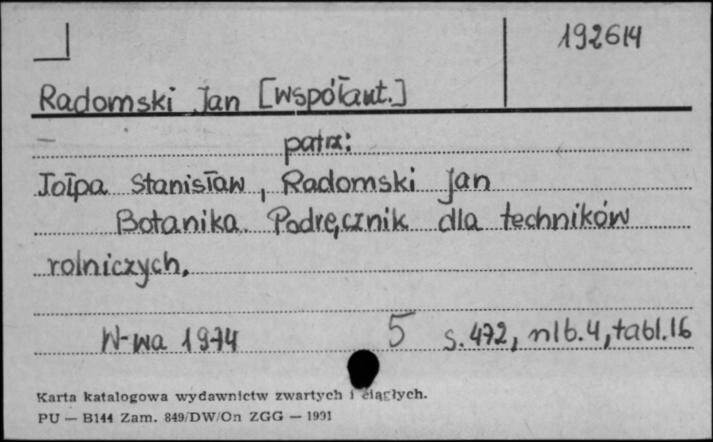 192614
Radomski Jan [współaut.]
patrz:
Tołpa Stanisław, Radomski Jan
Botanika. Podręcznik dla techników
rolniczych.
W-wa 1974 5 s. 472, nlb. 4, tabl. 16
Karta katalogowa wydawnictw zwartych i ciągłych.
PU — B144 Zam. 849/DW/On ZGG — 1991